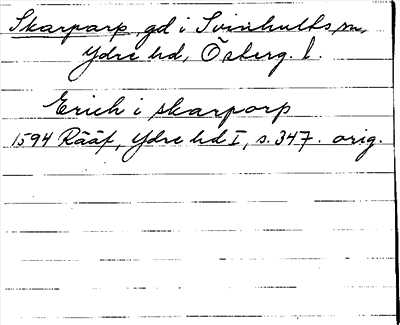 Skarparp gd i Svinhults sn,
Ydre hd, Österg. l.
Erich i skarporp
1594 Rääf, Ydre hd I, s. 347. orig.